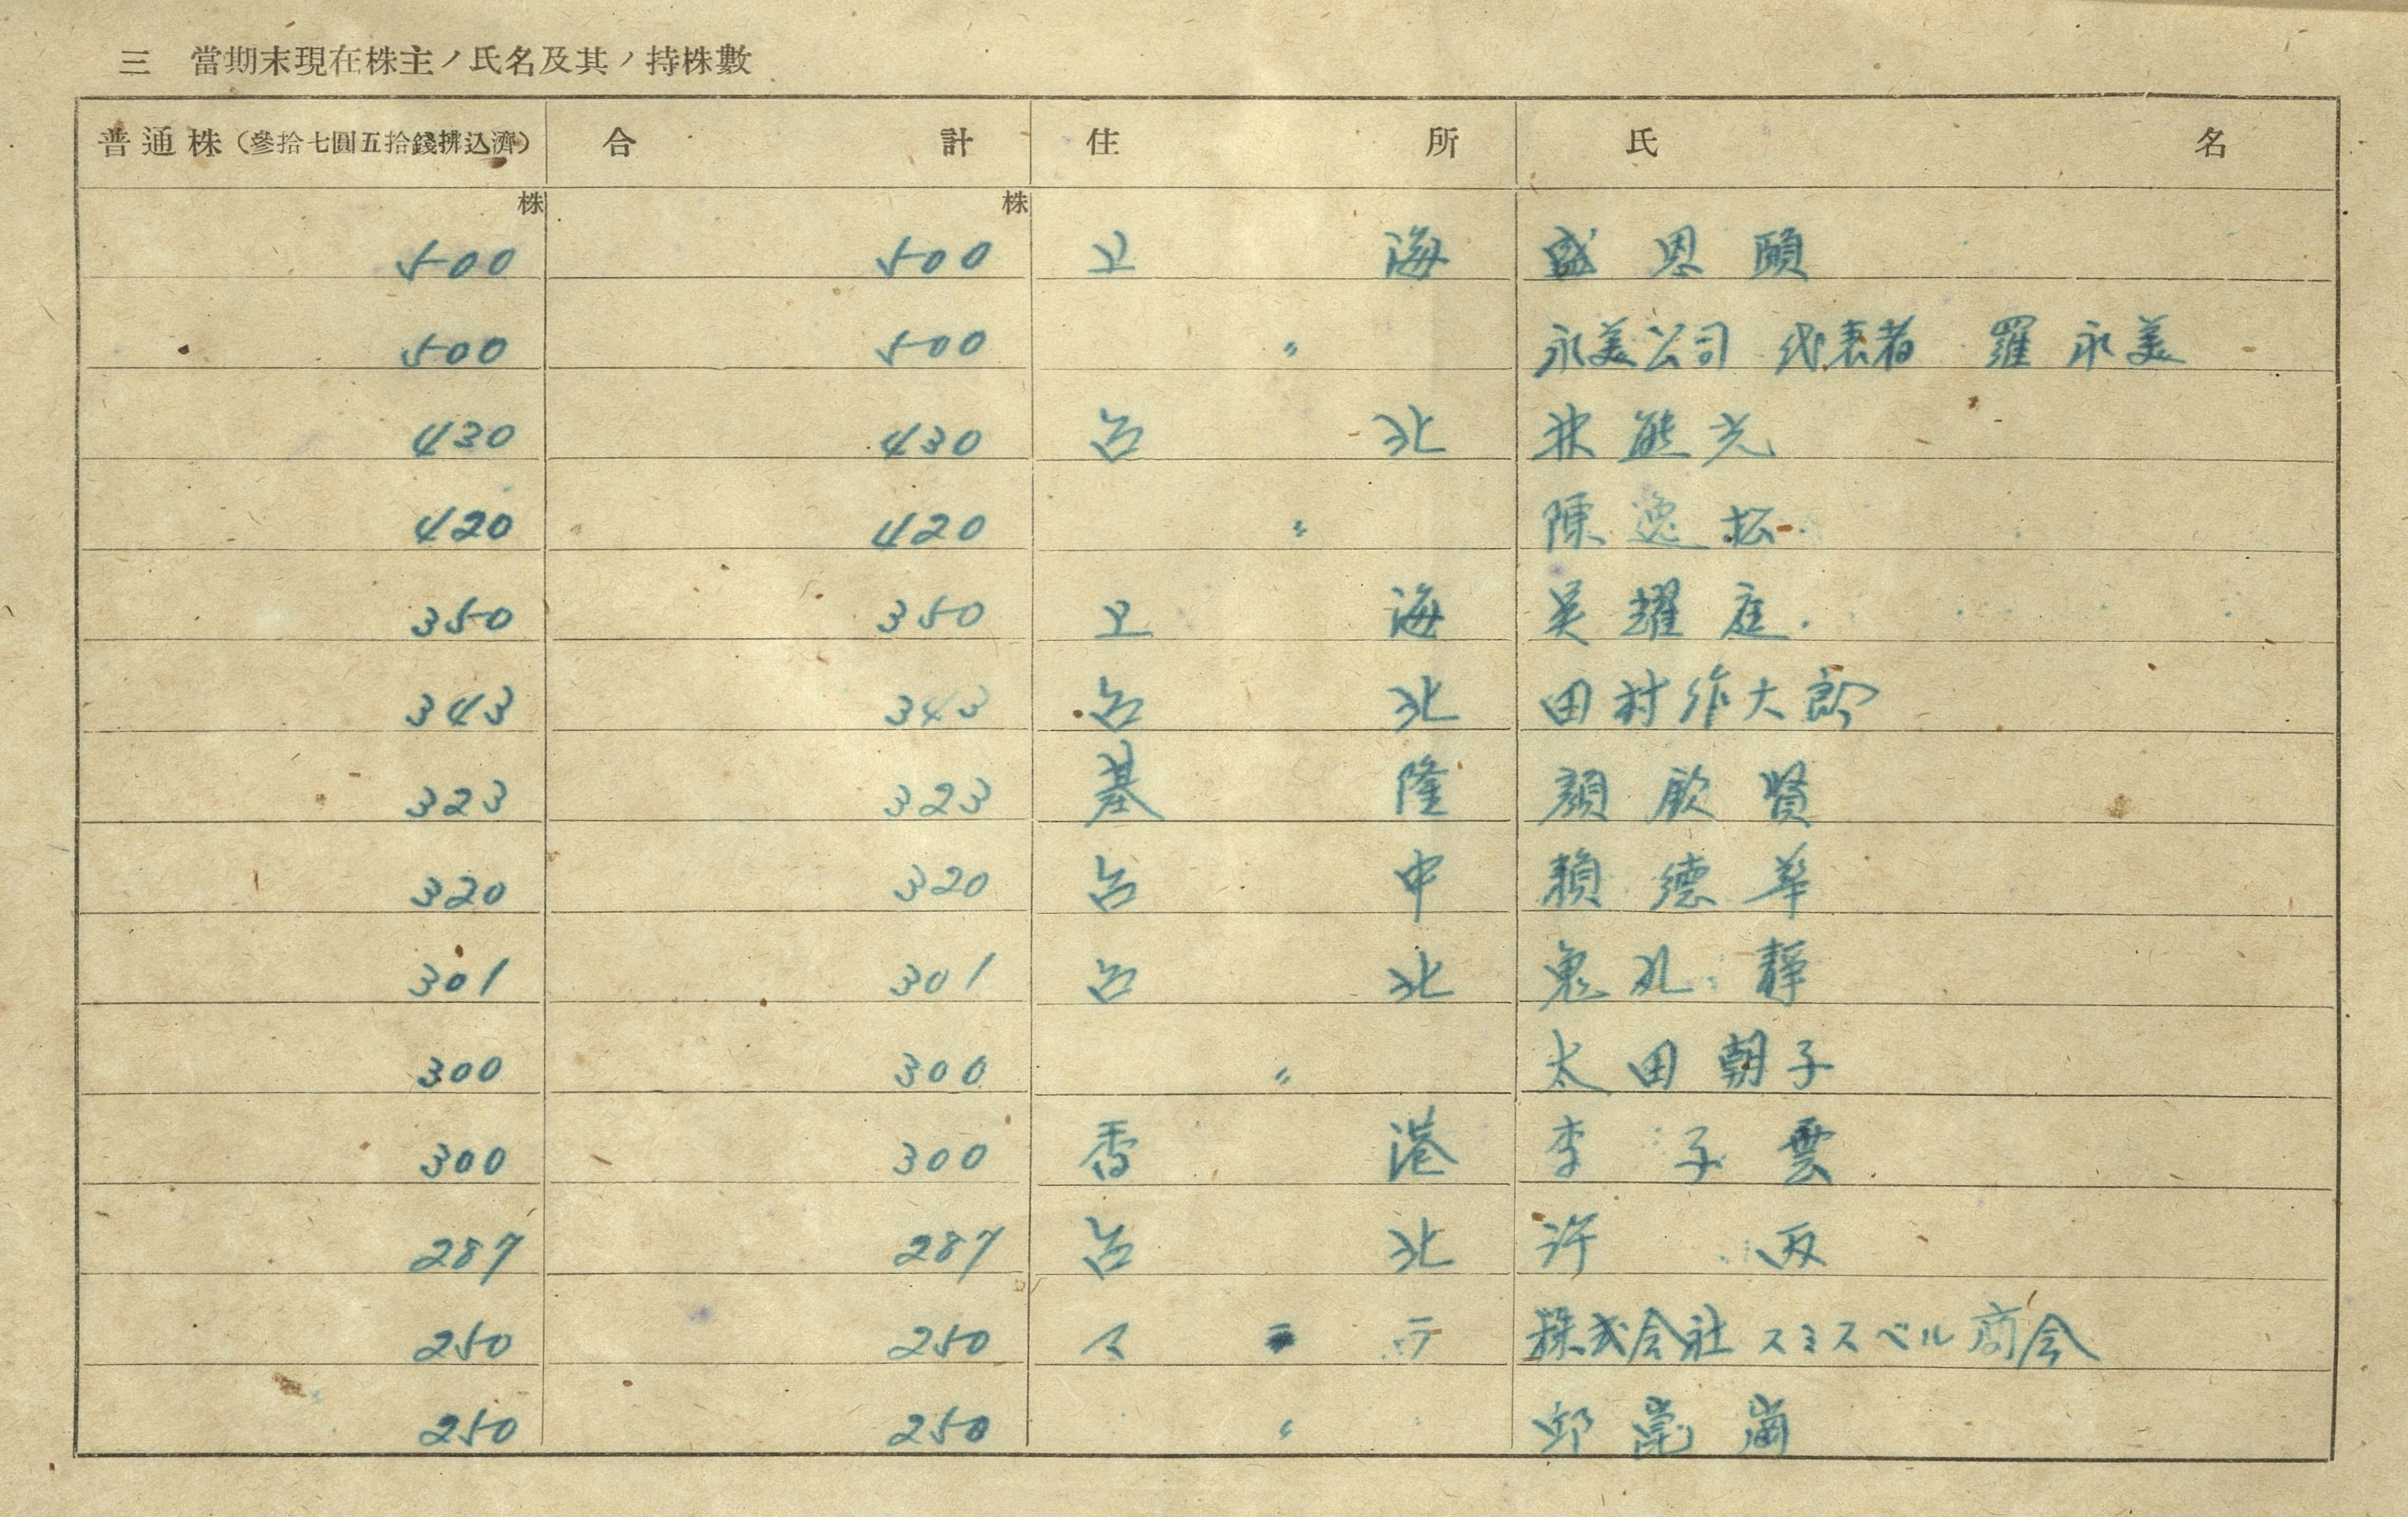 三 當期末現在株主ノ氏名及其ノ持株數
普通株(參拾七圓五拾錢拂込濟) 合計 住所 氏名
株 株
500 500 上海 盛恩頤
500 500 〃 永美公司 代表者 羅永美
430 430 台北 林熊光
420 420 〃 陳逸松
350 350 上海 吳耀庭
343 343 台北 田村作太郎
323 323 基隆 顏欽賢
320 320 台中 賴德華
301 301 台北 鬼丸靜
300 300 〃 太田朝子
300 300 香港 李子雲
287 287 台北 許丙
250 250 マニラ 株式会社スミスベル商会
250 250 〃 邱